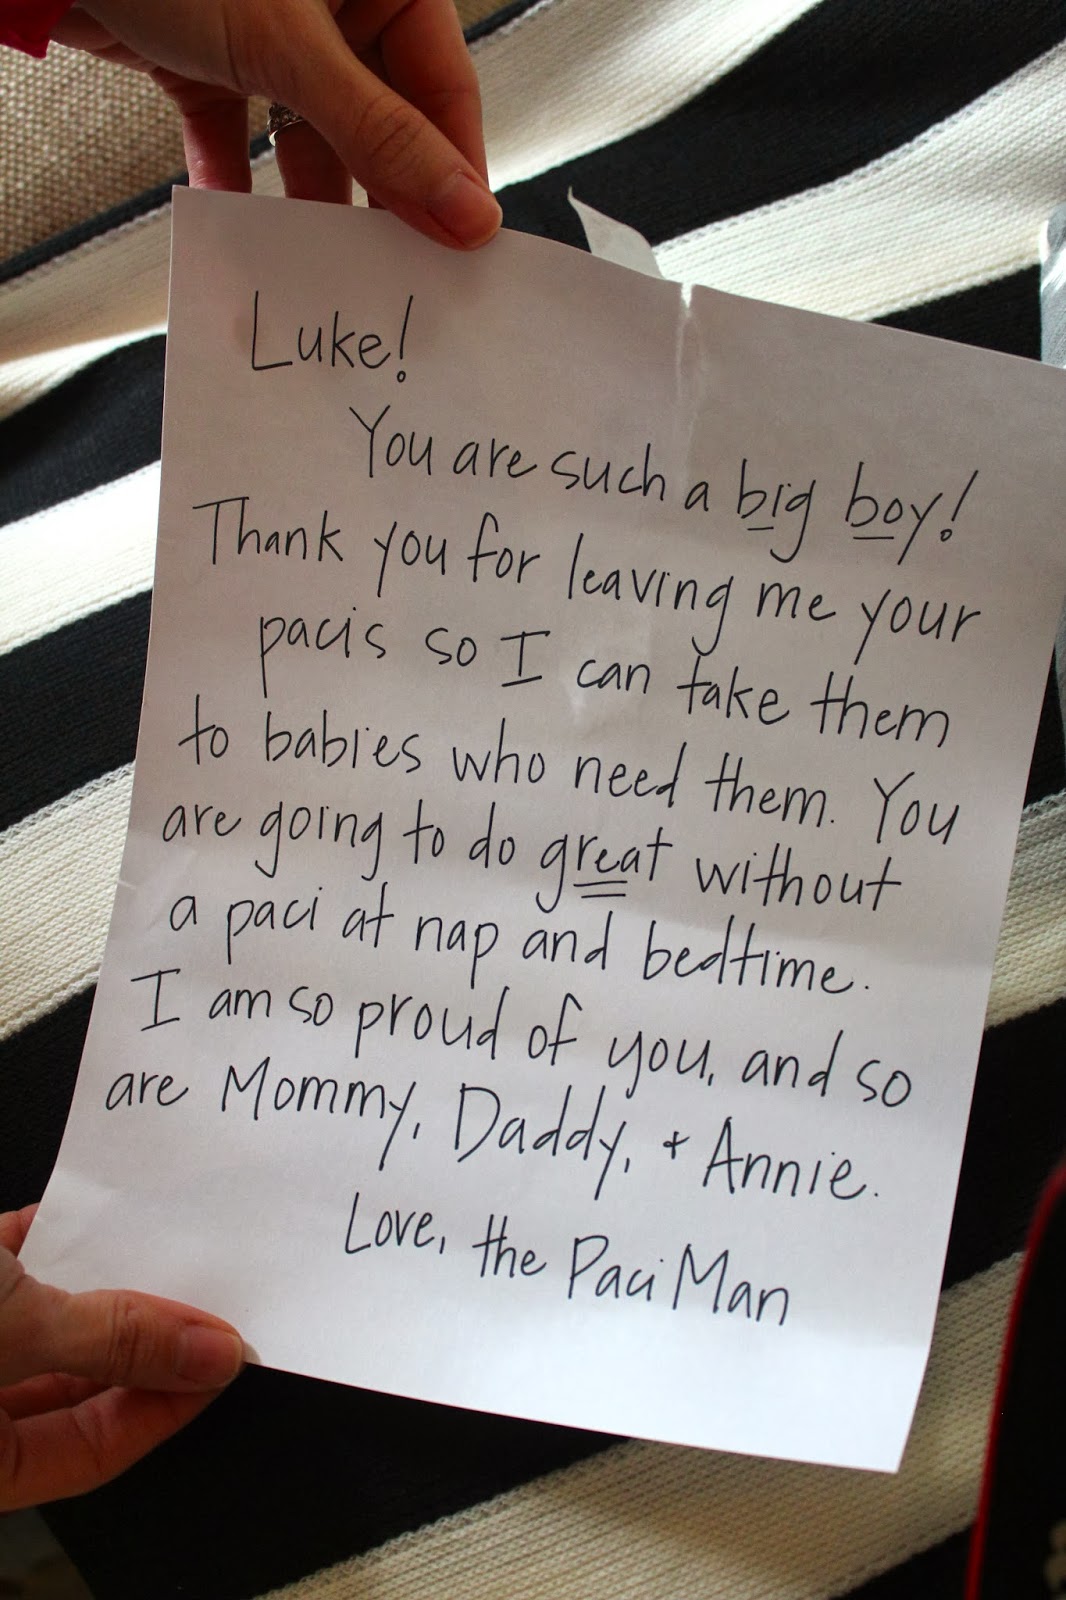 Luke!
You are such a big boy!
Thank you for leaving me your
pacis so I can take them
to babies who need them. You
are going to do great without
a paci at nap and bedtime.
I am so proud of you, and so
are Mommy, Daddy, + Annie.
Love, the Paci Man